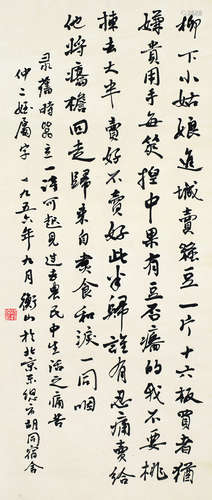 柳下小姑娘進城賣蠶豆一片十六板買者猶
嫌貴用手每筴捏中果有豆否癟的我不要挑
揀去大半賣好不賣好此半歸誰有忍痛賣給
他將癟檐回走歸來自煮食和淚一同咽
录舊時器立一詩可趂見過去農民中生活之痛苦
仲二姪屬字 一九五六年九月 衡山 於北京東總布胡同宿舍